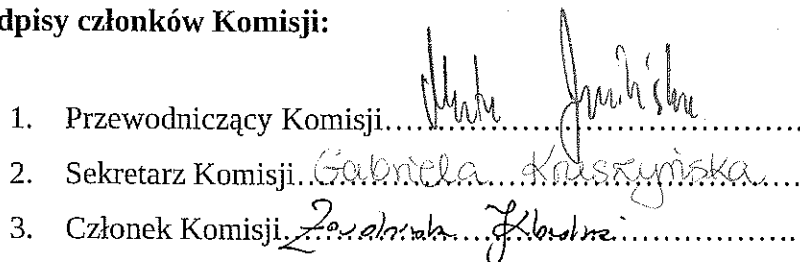 dpisy członków Komisji:
1. Przewodniczący Komisji
2. Sekretarz Komisji Gabriela Kruszyńska
3. Członek Komisji